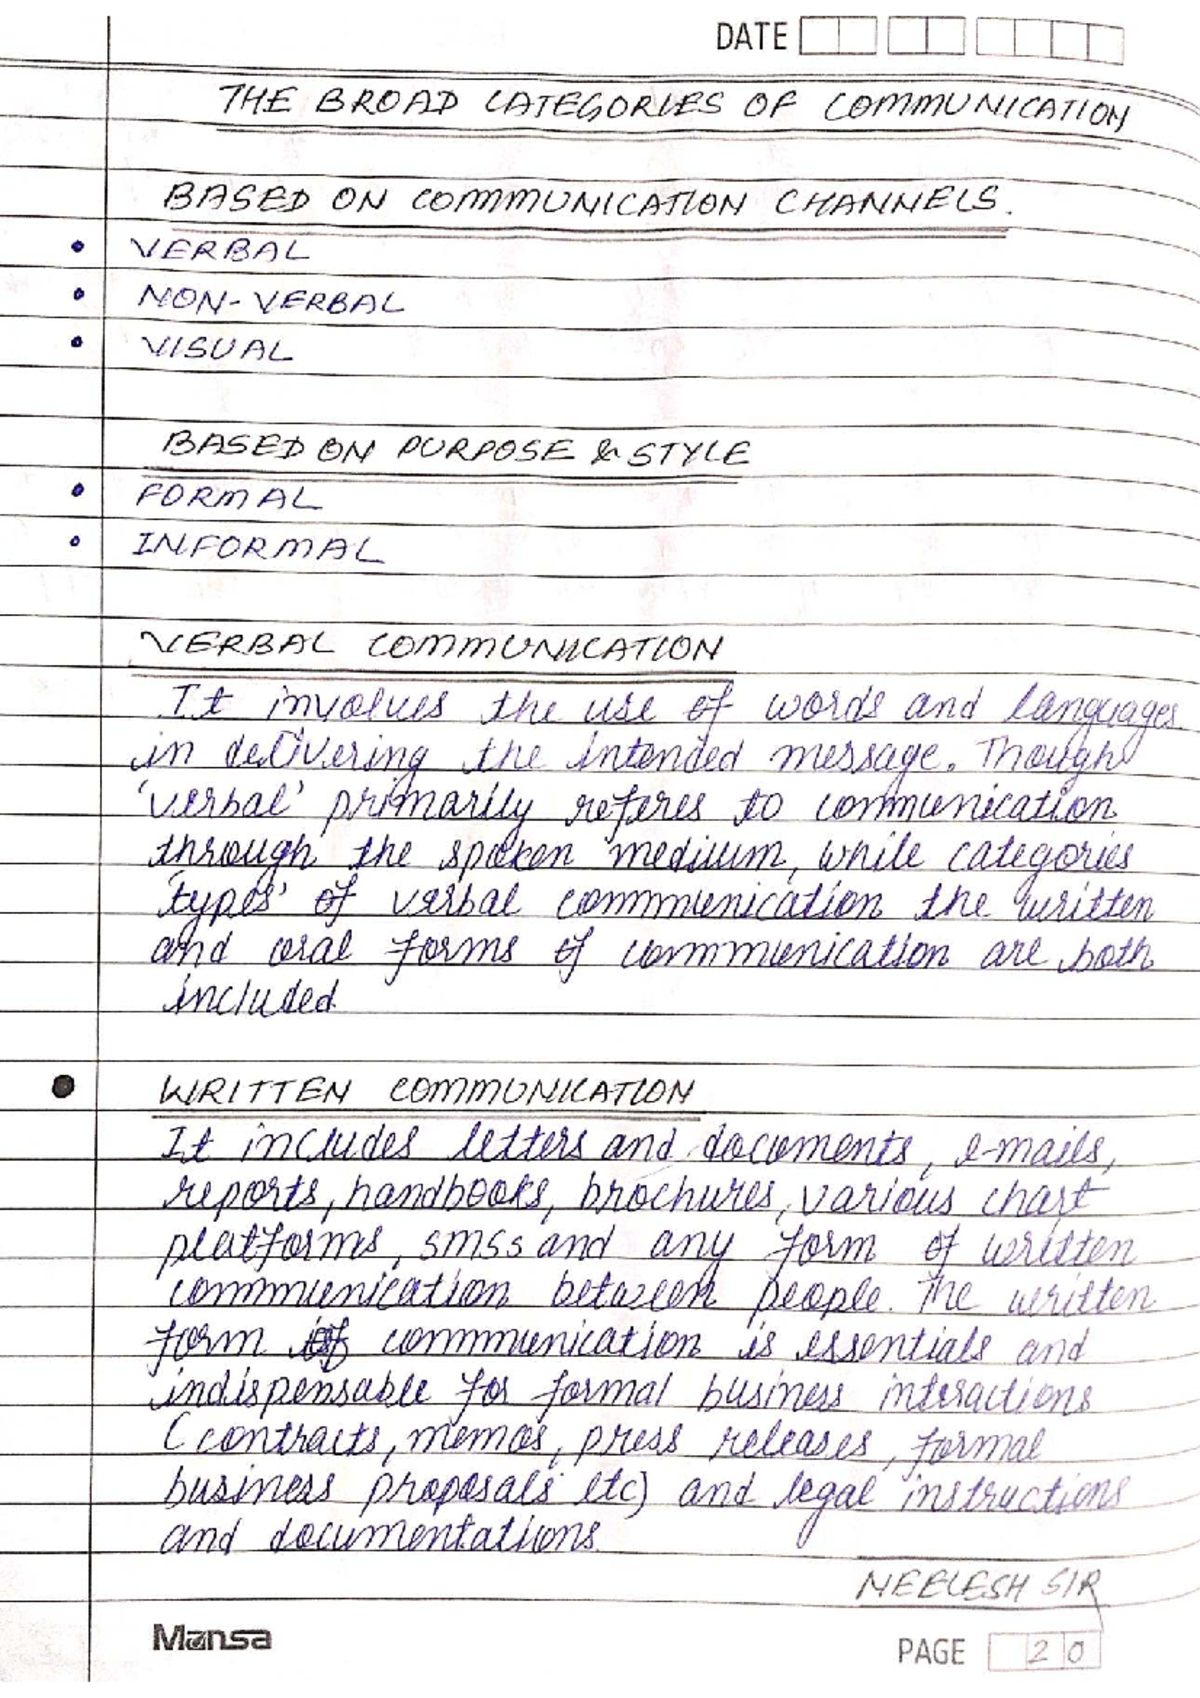 DATE
THE BROAD CATEGORIES OF COMMUNICATION
BASED ON COMMUNICATION CHANNELS.
• VERBAL
• NON-VERBAL
• VISUAL
BASED ON PURPOSE & STYLE
• FORMAL
• INFORMAL
VERBAL COMMUNICATION
It involves the use of words and languages
in delivering the intended message. Though
'verbal' primarily referes to communication
through the spoken medium, while categories
'types' of verbal communication the written
and oral forms of communication are both
included
• WRITTEN COMMUNICATION
It includes letters and documents, e-mails,
reports, handbooks, brochures, various chart
platforms, smss and any form of written
communication between people. The written
form of communication is essentials and
indispensable for formal business interactions
(contracts, memos, press releases, formal
business proposals etc) and legal instructions
and documentations.
NEELESH SIR
Mansa
PAGE 20